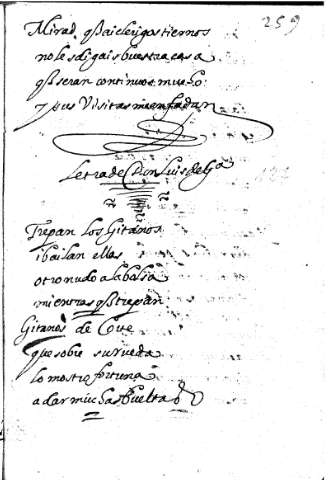 259
Mirad, q̃ si cien gostiernos
no les digais buestra casa
q̃ seran continuos mucho
y sus Visitas me enfadan
Letra de Don Luis de Ga
Trepan los Gitanos
i bailan ellas
otro nudo a la bolsa
mientras q̃ trepan
Gitanos de Corte
que sobre su rueda
lo mostro fortuna
a dar muchas Buelta